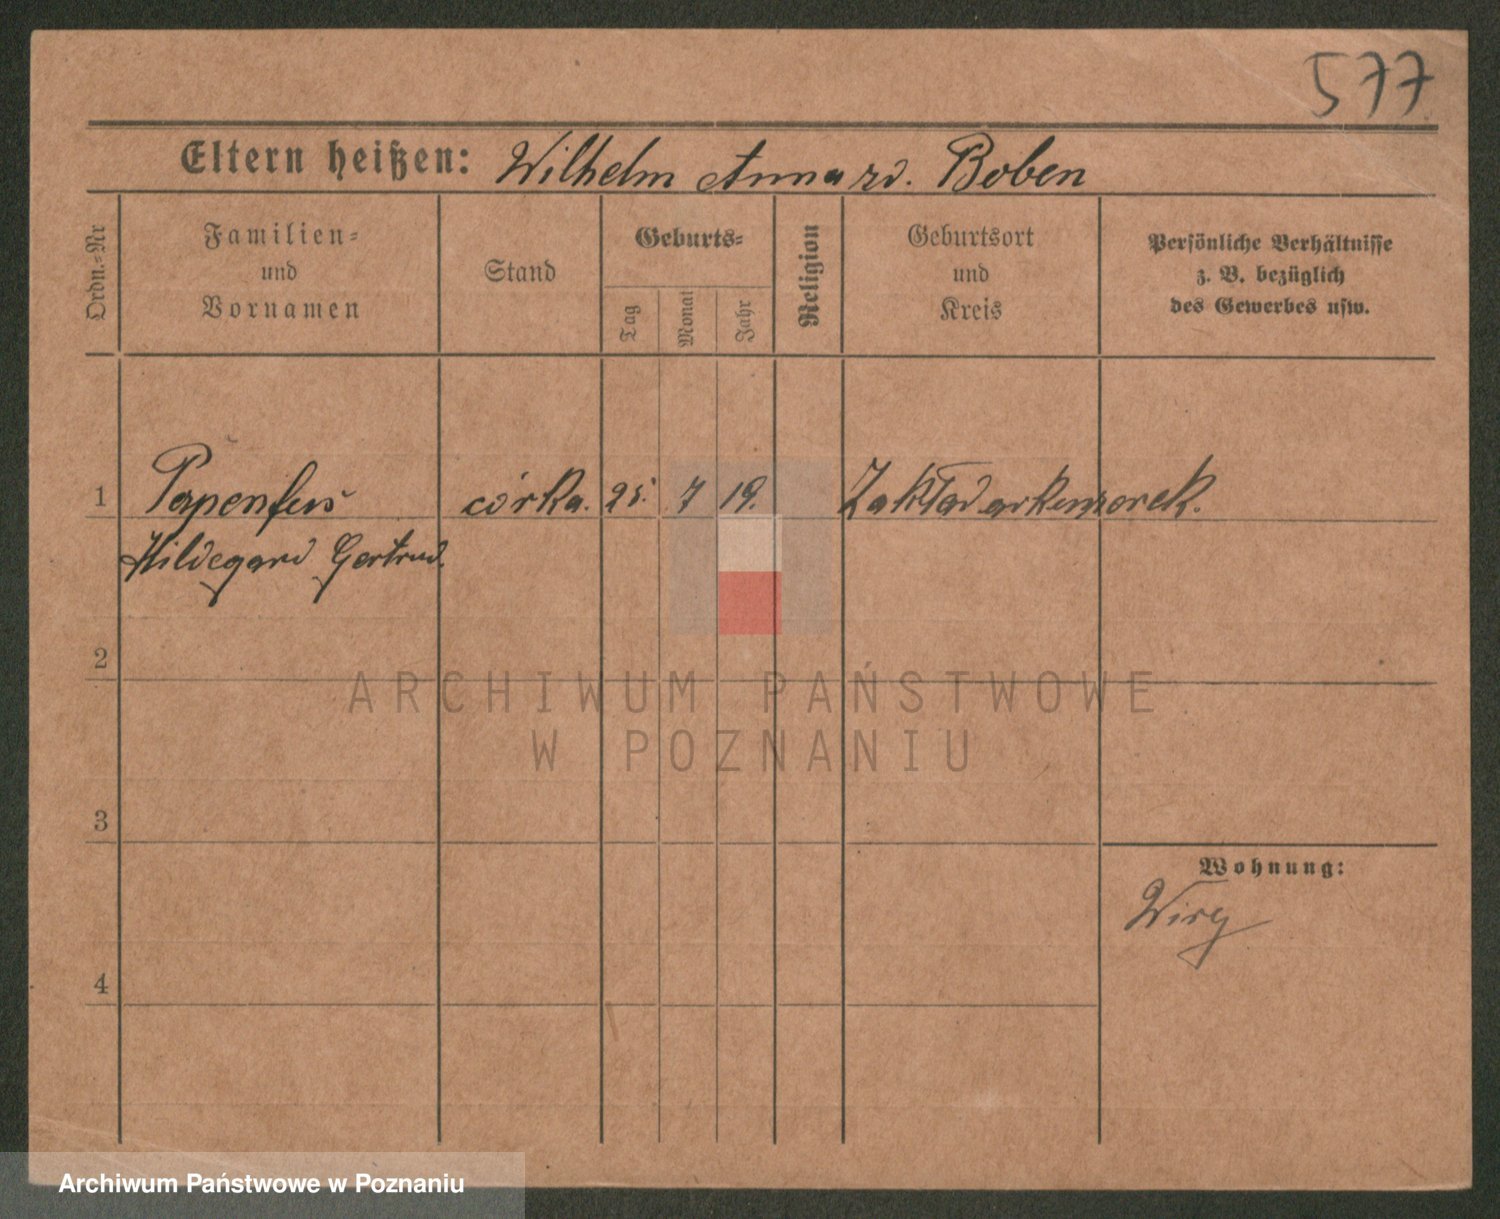 577.
Eltern heißen: Wilhelm Anna rd. Boben
Ordn.=Nr
Familien=
und
Vornamen
Stand
Geburts=
Tag
Monat
Jahr
Religion
Geburtsort
und
Kreis
Persönliche Verhältnisse
z. B. bezüglich
des Gewerbes usw.
1 Papenfus córka. 25. 7 19. Zakład
Hildegard Gertrud.
2
ARCHIWUM PAŃSTWOWE
W POZNANIU
3
Wohnung:
Wiry
4
Archiwum Państwowe w Poznaniu